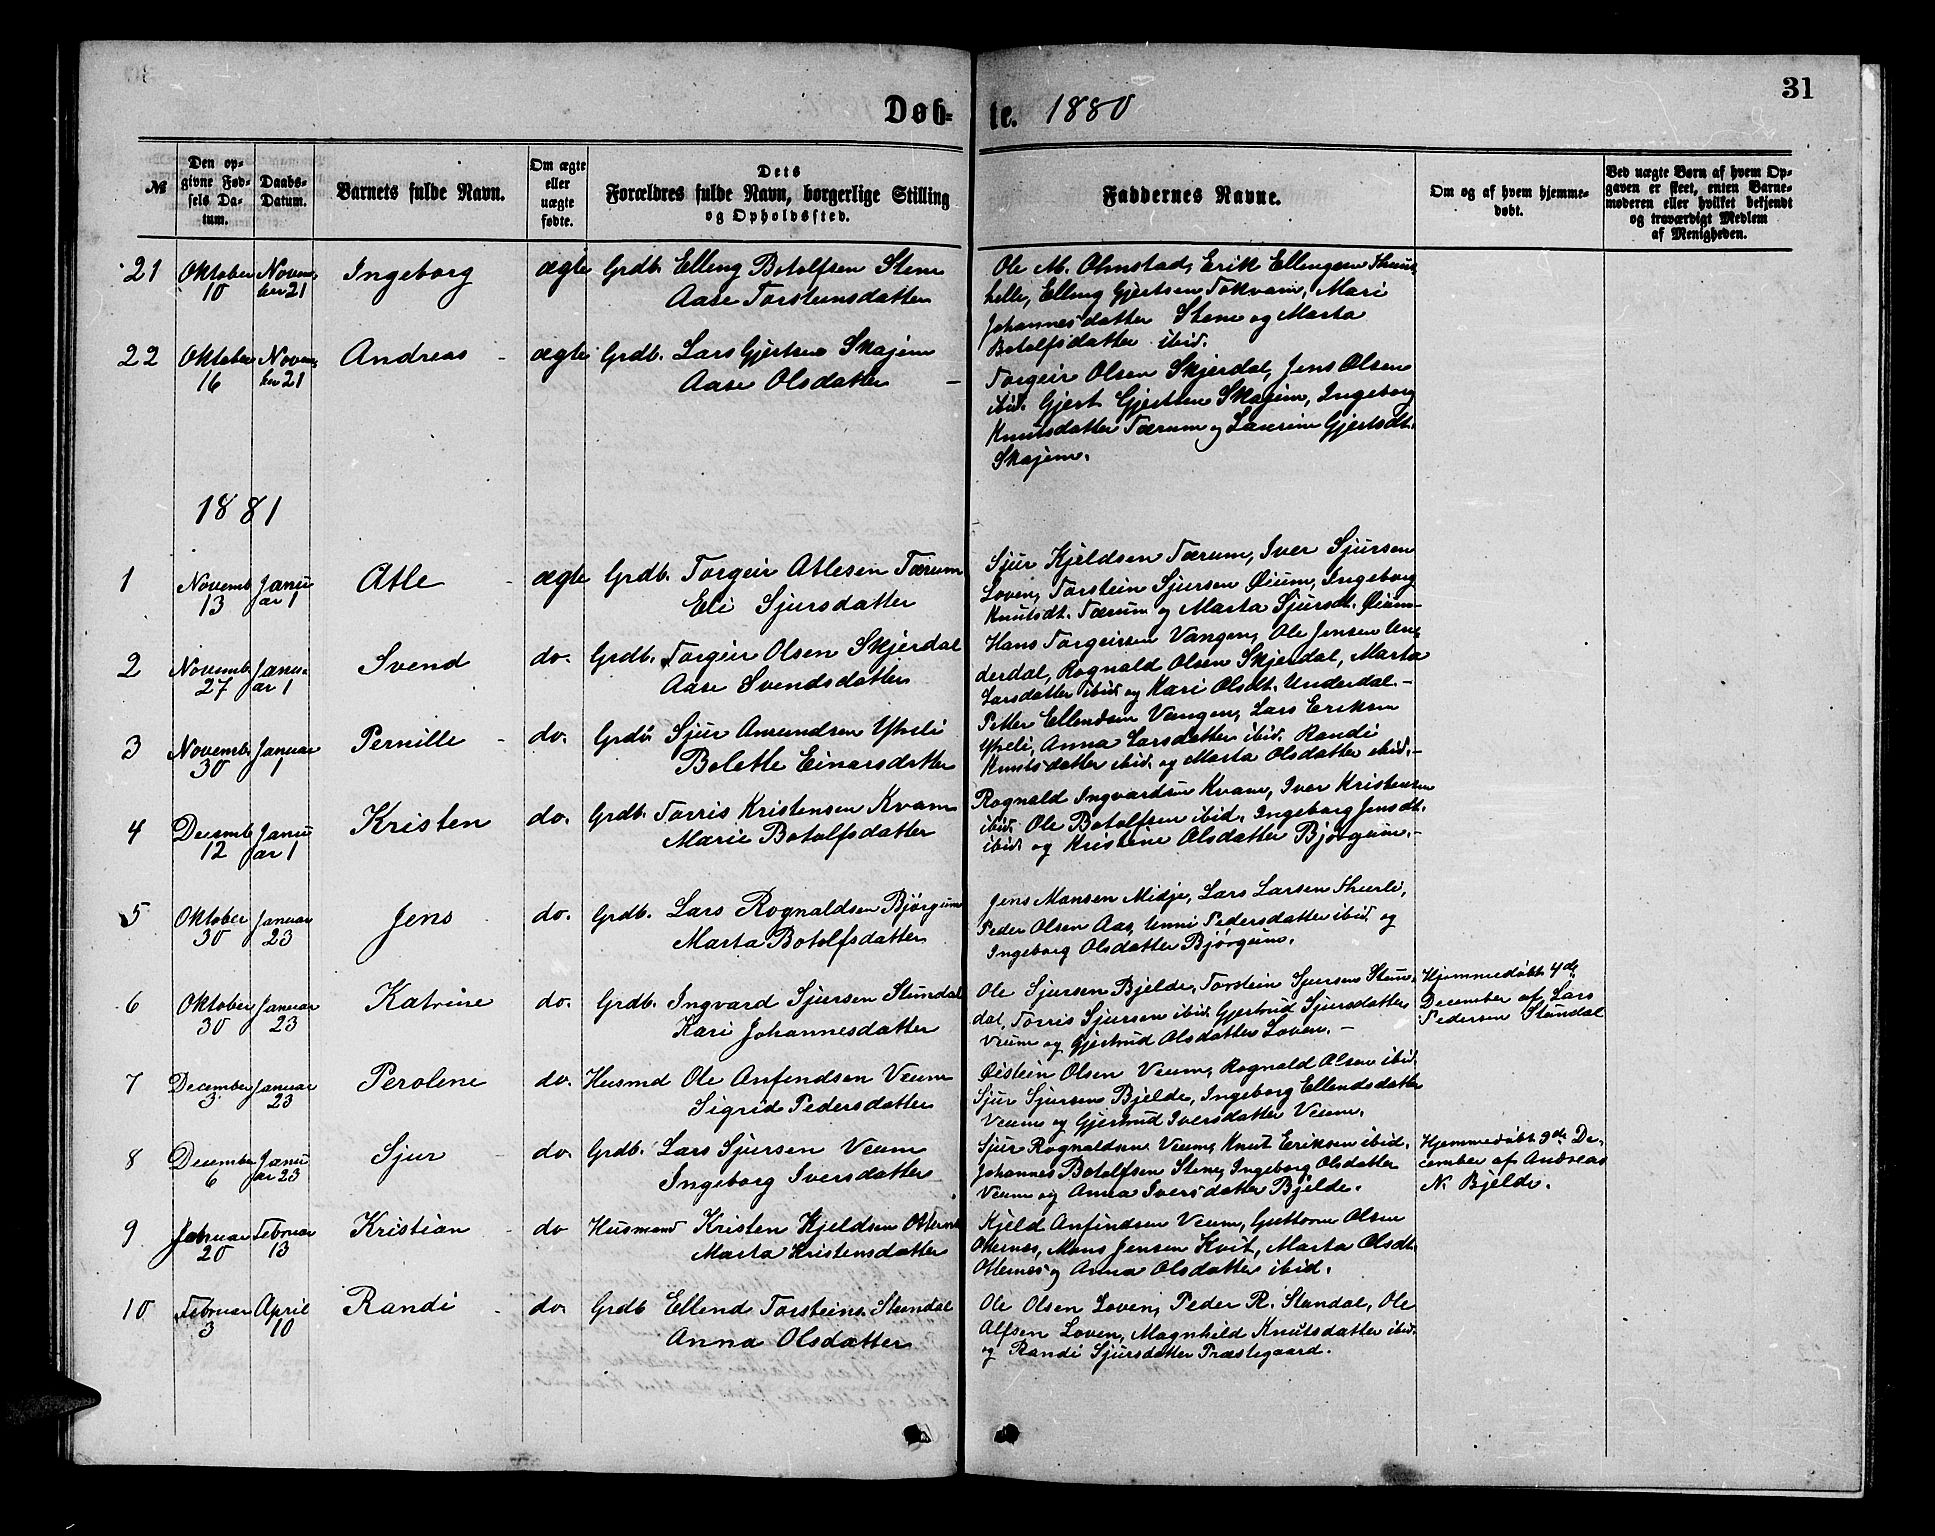 31
Døb- te. 1880
№
Den opgivne Fødsels Datum.
Daabs-Datum.
Barnets fulde Navn.
Om ægte eller uægte fødte.
Dets Forældres fulde Navn, borgerlige Stilling og Opholdssted.
Faddernes Navne.
Om og af hvem hjemmedøbt.
Ved uægte Børn af hvem Opgaven er skeet, enten Barnemoderen eller hvilket bekjendt og troværdigt Medlem af Menigheden.
21 Oktober 10 November 21 Ingeborg ægte Grdb. Elling Botolfsen Stene
Aase Torsteinsdatter
Ole M. Ohnstad, Erik Ellingsen
helle, Elling Gjertsen Tokvam, Mari
Johannesdatter Stene og Marta
Botolfsdatter ibid.
22 Oktober 16 November 21 Andreas - ægte Grdb. Lars Gjertsen Skajem
Aase Olsdatter -
Torgeir Olsen Skjerdal, Jens Olsen
ibid. Gjert Gjertsen Skajem, Ingeborg
Knutsdatter Tærum og Laurine Gjertsdt.
Skajem.
1881
1 Novemb 13 Januar 1 Atle - ægte Grdb. Torgeir Atlesen Tærum
Eli Sjursdatter
Sjur Kjeldsen Tærum, Iver Sjursen
Loven, Torstein Sjursen Øium, Ingeborg
Knutsdt. Tærum og Marta Sjursdt. Øium-
2 Novemb 27 Januar 1 Svend do. Grdb. Torgeir Olsen Skjerdal
Aase Svendsdatter
Hans Torgeirsen Vangen, Ole Jensen Un-
derdal, Rognald Olsen Skjerdal, Marta
Larsdatter ibid og Kari Olsdt. Underdal.-
3 Novemb 30 Januar 1 Pernille - do. Grdb Sjur Amundsen Ytreli
Bolette Einarsdatter
Petter Ellendsen Vangen, Lars Eriksen
Ytreli, Anna Larsdatter ibid. Randi
Knutsdatter ibid. og Marta Olsdatter ibid.-
4 Decemb 12 Januar 1 Kristen do. Grdb. Torris Kristensen Kvam
Marie Botolfsdatter
Rognald Ingvardsen Kvam, Iver Kristensen
ibid. Ole Botolfsen ibid. Ingeborg Jensdt.
ibid. og Kristine Olsdatter Bjørgum.-
5 Oktober 30 Januar 23 Jens do. Grdb. Lars Rognaldsen Bjørgum
Marta Botolfsdatter
Jens Monsen Midje, Lars Larsen
Peder Olsen Aas, Unni Pedersdatter ibid og
Ingeborg Olsdatter Bjørgum.
6 Oktober 30 Januar 23 Katrine do. Grdb. Ingvard Sjursen Stundal
Kari Johannesdatter
Ole Sjursen Bjelde, Torstein Sjursen Stun-
dal, Torris Sjursen ibid. Gjertrud Sjursdatter
Veum og Gjertrud Olsdatter Loven. -
Hjemmedøbt 4de
December af Lars
Pedersen Stundal
7 December 3 Januar 23 Perolene do. Husmd Ole Anfindsen Veum
Sigrid Pedersdatter
Øistein Olsen Veum, Rognald Olsen ibid.
Sjur Sjursen Bjelde, Ingeborg Ellendsdatter
Veum og Gjertrud Iversdatter Veum.
8 December 6 Januar 23 Sjur - do. Grdb. Lars Sjursen Veum
Ingeborg Iversdatter
Sjur Rognaldsen Veum, Knut Eriksen ibid.
Johannes Botolfsen Stene, Ingeborg Olsdatter
Veum og Anna Iversdatter Bjelde.
Hjemmedøbt 9de De-
cember af Andreas
N. Bjelde.
9 20 Februar 13 Kristian - do Husmand Kristen Kjeldsen Otternes
Marta Kristensdatter
Kjeld Anfindsen Veum, Guttorm Olsen
Otternes, Mons Jensen Kvit, Marta Olsdt.
Otternes og Anna Olsdatter ibid.
10 Februar 3 April 10 Randi - do. Grdb Ellend Torsteins. Stundal
Anna Olsdatter
Ole Olsen Loven, Peder R. Stundal, Ole
Alfsen Loven, Magnhild Knutsdatter ibid.
og Randi Sjursdatter Præstegaard.